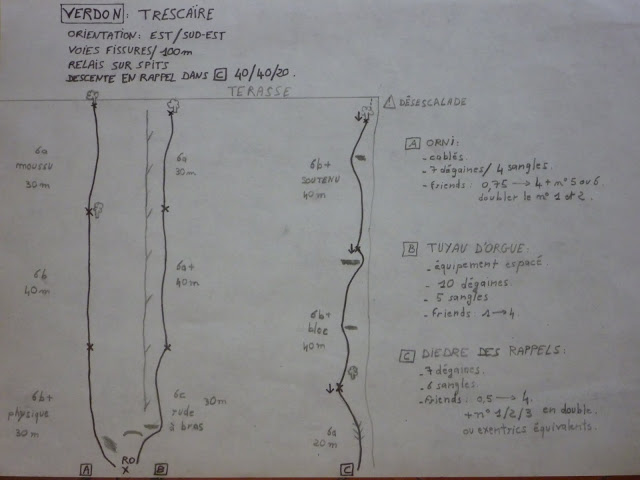 VERDON: TRESCAÏRE
ORIENTATION: EST/SUD-EST
VOIES FISSURES/100m
RELAIS SUR SPITS
DESCENTE EN RAPPEL DANS C 40/40/20.
TERASSE
⚠ DÉSESCALADE
6a
moussu
30m
6b
40m
6b+
physique
30m
A
RO
X
6a
30m
6a+
40m
6c
rude
à bras
30m
B
6b+
SOUTENU
40m
6b+
bloc
40m
6a
20m
C
A ORNI:
- cablés.
- 7 dégaines/ 4 sangles.
- friends: 0,75 → 4 + n° 5 ou 6.
doubler le n° 1 et 2.
B TUYAU D'ORGUE:
- équipement espacé.
- 10 dégaines.
- 5 sangles
- friends: 1 → 4.
C DIEDRE DES RAPPELS:
- 7 dégaines.
- 6 sangles.
- friends: 0,5 → 4.
+ n° 1/2/3 en double.
ou exentrics équivalents.